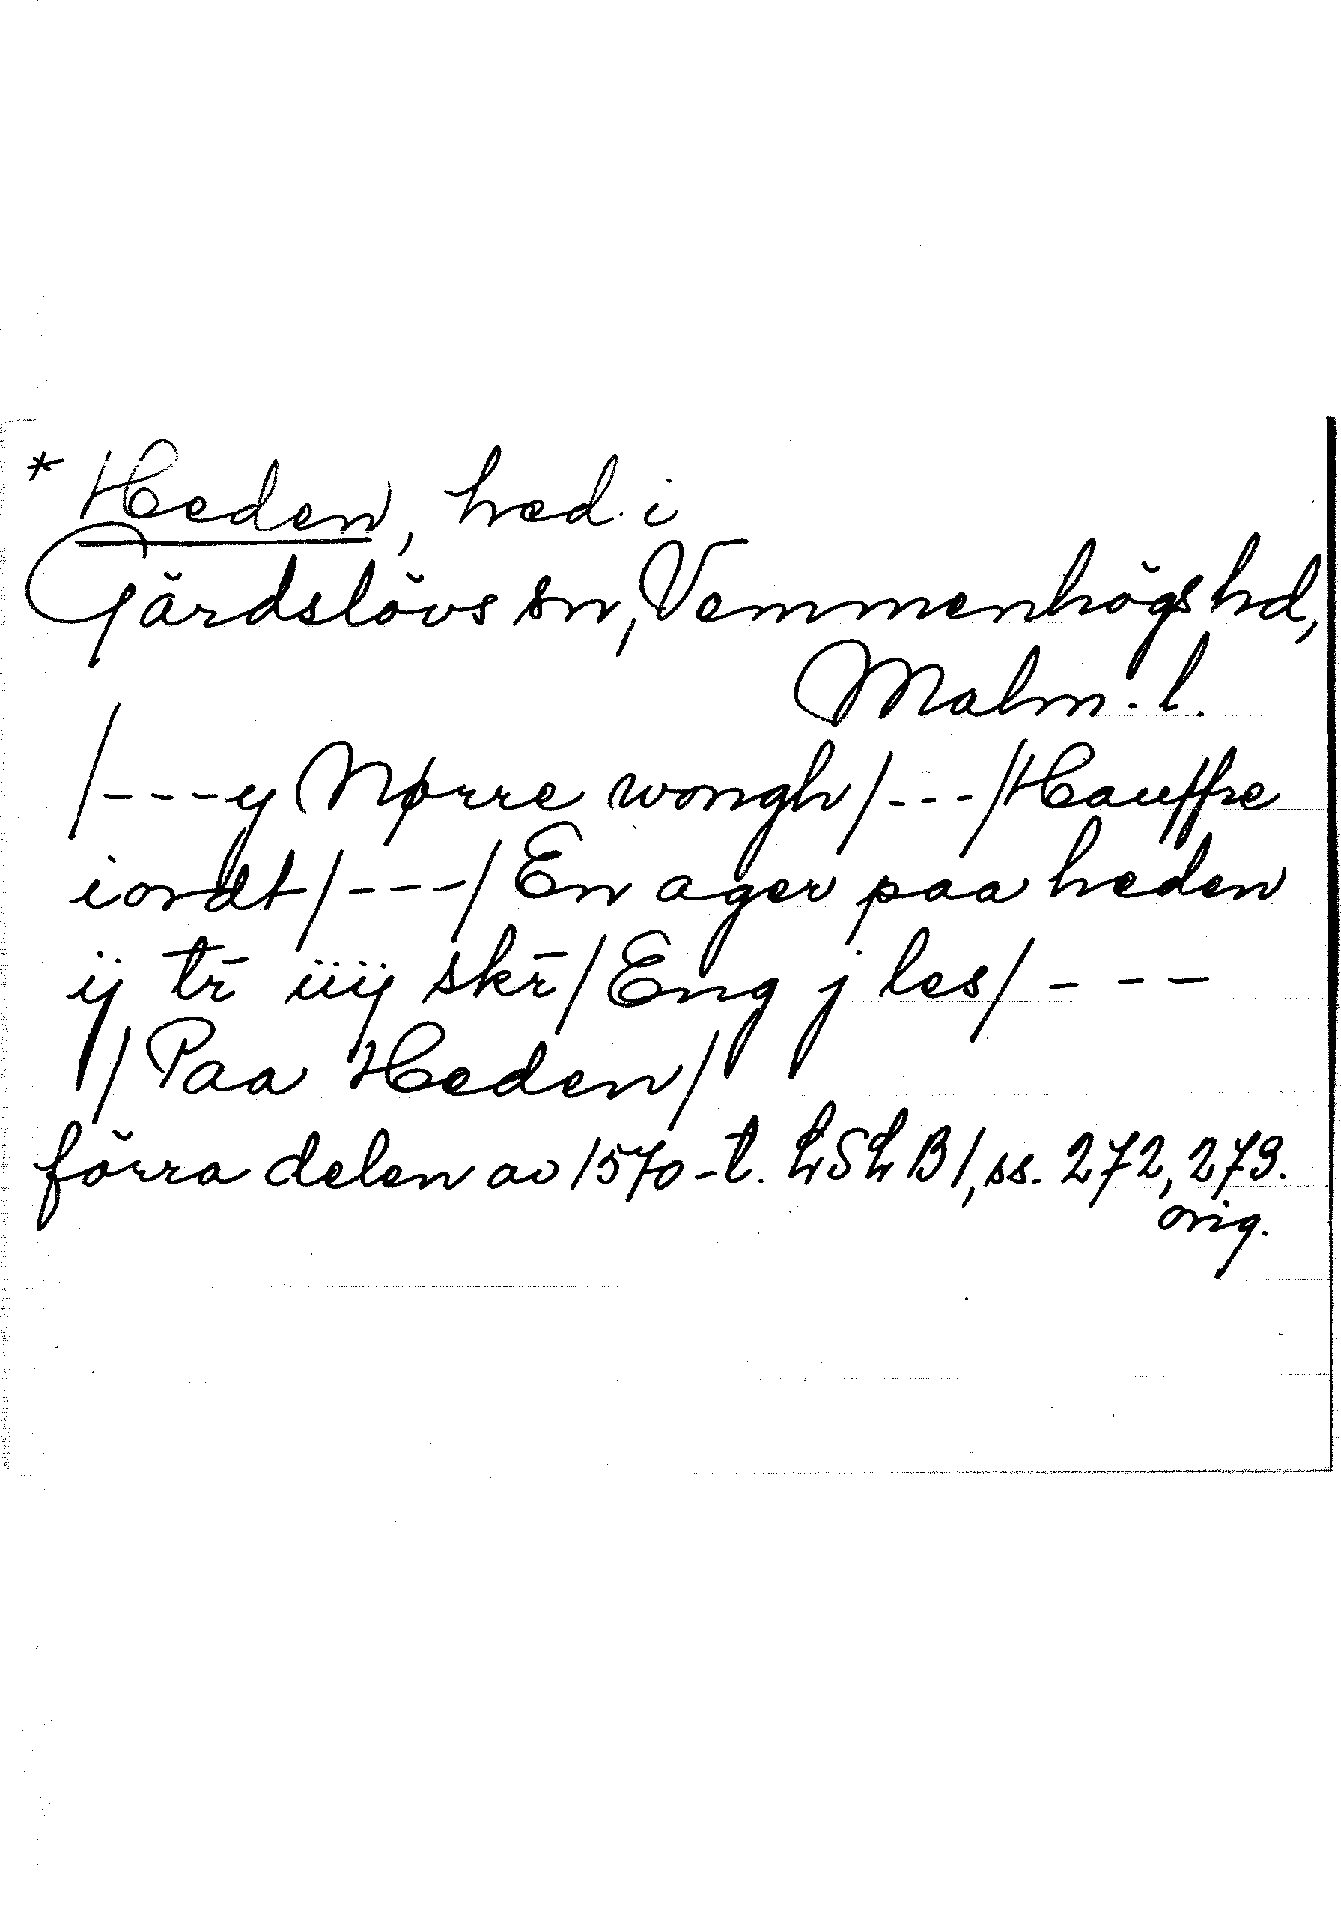 * Heden, hed i
Gärdslövs sn, Vemmenhögs hd,
Malm. l.
/---y Nørre wongh/---/Hauffre
iordt/---/En ager paa heden
ij tr̄ iiij skr̄/Eng j les/---
/Paa Heden/
förra delen av 1570-t. LSLB1, ss. 272, 273.
orig.